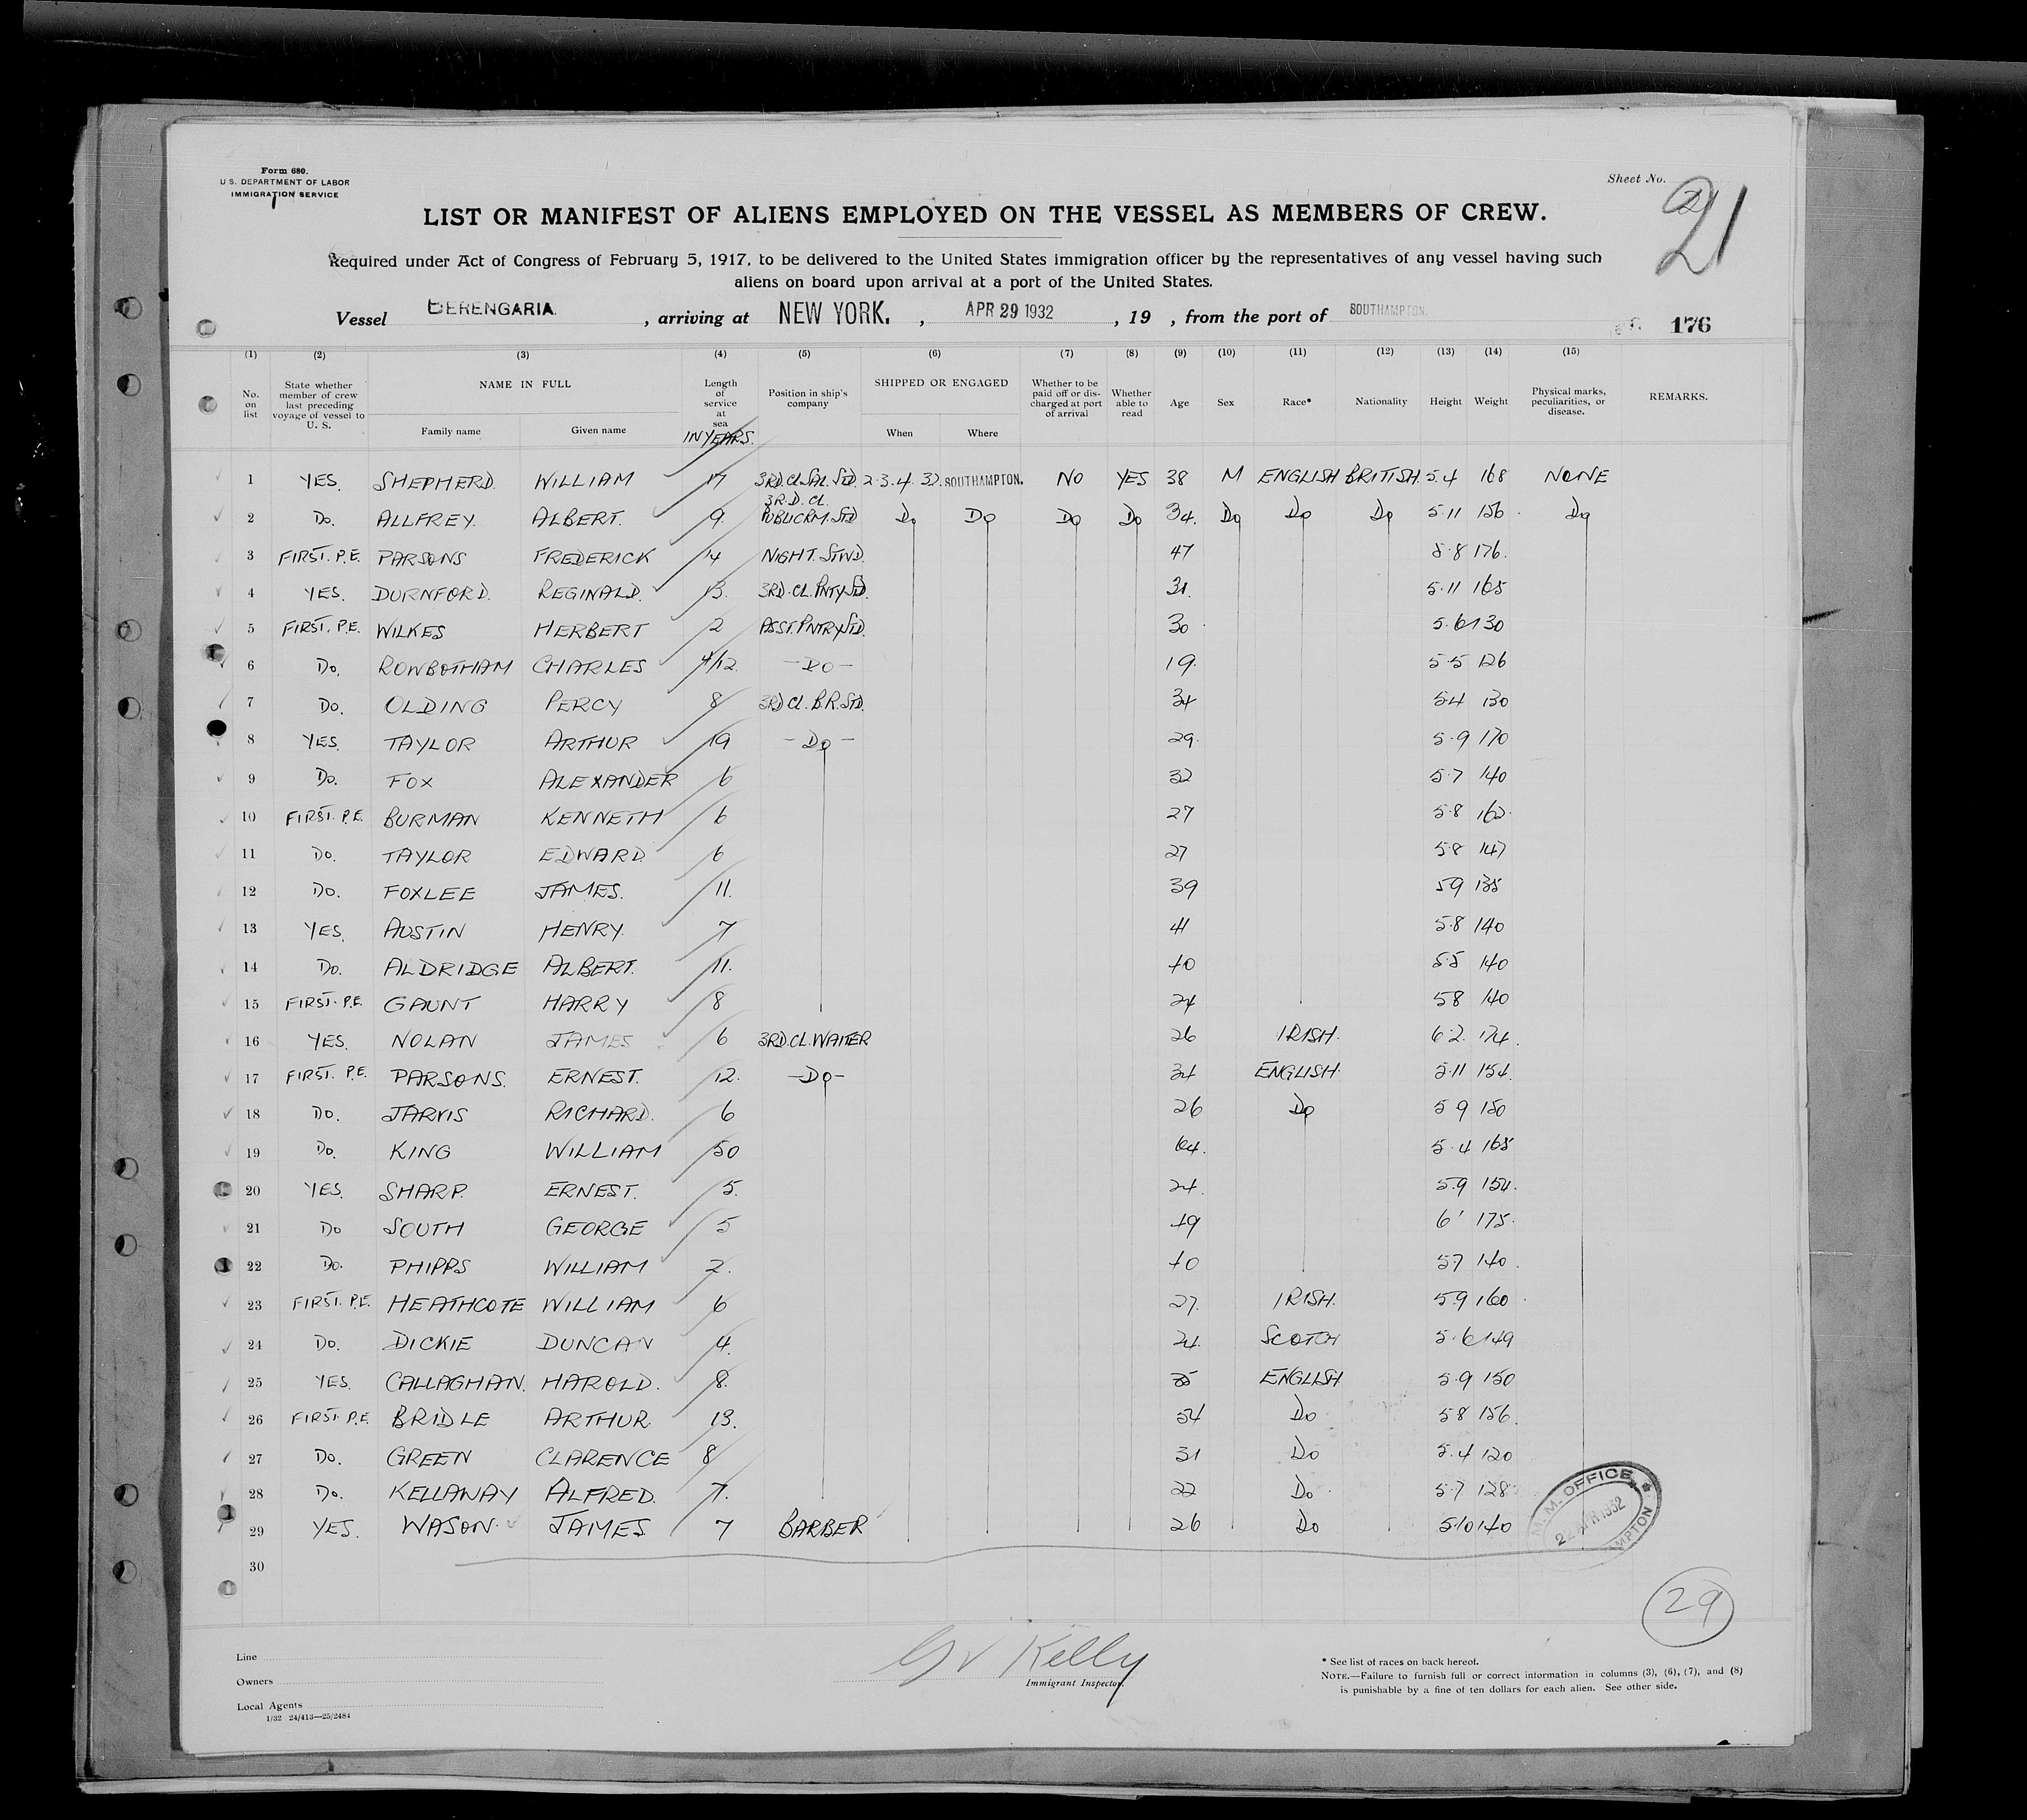 Form 680.
U.S. DEPARTMENT OF LABOR
IMMIGRATION SERVICE
Sheet No.
21
LIST OR MANIFEST OF ALIENS EMPLOYED ON THE VESSEL AS MEMBERS OF CREW.
Required under Act of Congress of February 5, 1917, to be delivered to the United States immigration officer by the representatives of any vessel having such
aliens on board upon arrival at a port of the United States.
Vessel BERENGARIA. , arriving at NEW YORK. , APR 29 1932 , 19 , from the port of SOUTHAMPTON.
176
(1) (2) (3) (4) (5) (6) (7) (8) (9) (10) (11) (12) (13) (14) (15)
No. on list State whether member of crew last preceding voyage of vessel to U. S. NAME IN FULL Family name Given name Length of service at sea IN YEARS. Position in ship's company SHIPPED OR ENGAGED When Where Whether to be paid off or discharged at port of arrival Whether able to read Age Sex Race* Nationality Height Weight Physical marks, peculiarities, or disease. REMARKS.
1 YES. SHEPHERD. WILLIAM 17 3RD.CL.SAL.STD. 2-3.4.32. SOUTHAMPTON. NO YES 38 M ENGLISH BRITISH. 5.4 168 NONE
2 Do. ALLFREY. ALBERT. 9. 3RD.CL. PUBLICRM.STD Do Do Do Do 34. Do Do Do 5.11 156 Do
3 FIRST. P.E. PARSONS FREDERICK 14 NIGHT.STWD. 47 5.8 176.
4 YES. DURNFORD. REGINALD. 13. 3RD.CL.PNTY.STD. 31. 5.11 165
5 FIRST. P.E. WILKES HERBERT 2 ASST.PNTRY.STD. 30 5.6 130
6 Do. ROWBOTHAM CHARLES 4/12. -Do- 19. 5.5 126
7 Do. OLDING PERCY 8 3RD.CL.B.R.STD. 34 5.4 130
8 YES. TAYLOR ARTHUR 19 -Do- 29. 5.9 170
9 Do. FOX ALEXANDER 6 32 5.7 140
10 FIRST. P.E. BURMAN KENNETH 6 27 5.8 162.
11 Do. TAYLOR EDWARD. 6 27 5.8 147
12 Do. FOXLEE JAMES. 11. 39 5 9 135
13 YES. AUSTIN HENRY. 7 41 5.8 140
14 Do. ALDRIDGE ALBERT. 11. 40 5.5 140
15 FIRST. P.E. GAUNT HARRY 8 24 5 8 140
16 YES. NOLAN JAMES 6 3RD.CL.WAITER 26 IRISH. 6.2. 174.
17 FIRST. P.E. PARSONS. ERNEST. 12. -Do- 34 ENGLISH. 5.11 154.
18 Do. JARVIS RICHARD. 6 26 Do 5 9 150
19 Do. KING WILLIAM 50 64. 5.4 165
20 YES. SHARP. ERNEST. 5. 24. 5.9 154.
21 Do SOUTH GEORGE 5 49 6' 175.
22 Do. PHIPPS WILLIAM 2. 40 5 7 140.
23 FIRST. P.E. HEATHCOTE WILLIAM 6 27. IRISH. 5.9 160
24 Do. DICKIE DUNCAN 4. 24. SCOTCH 5.6 149
25 YES. CALLAGHAN. HAROLD. 8. 35 ENGLISH 5.9 150
26 FIRST. P.E. BRIDLE ARTHUR. 13. 34 Do 5 8 156.
27 Do. GREEN CLARENCE 8 31 Do 5.4 120
28 Do. KELLAWAY ALFRED. 7. 22 Do 5.7 128
29 YES. WASON. JAMES 7 BARBER 26 Do 5 10 140
30
M.M. OFFICE
22 APR 1932
29
Line
Owners
Local Agents
1/32 24/413—25/2484
Kelly
Immigrant Inspector.
* See list of races on back hereof.
NOTE.—Failure to furnish full or correct information in columns (3), (6), (7), and (8)
is punishable by a fine of ten dollars for each alien. See other side.